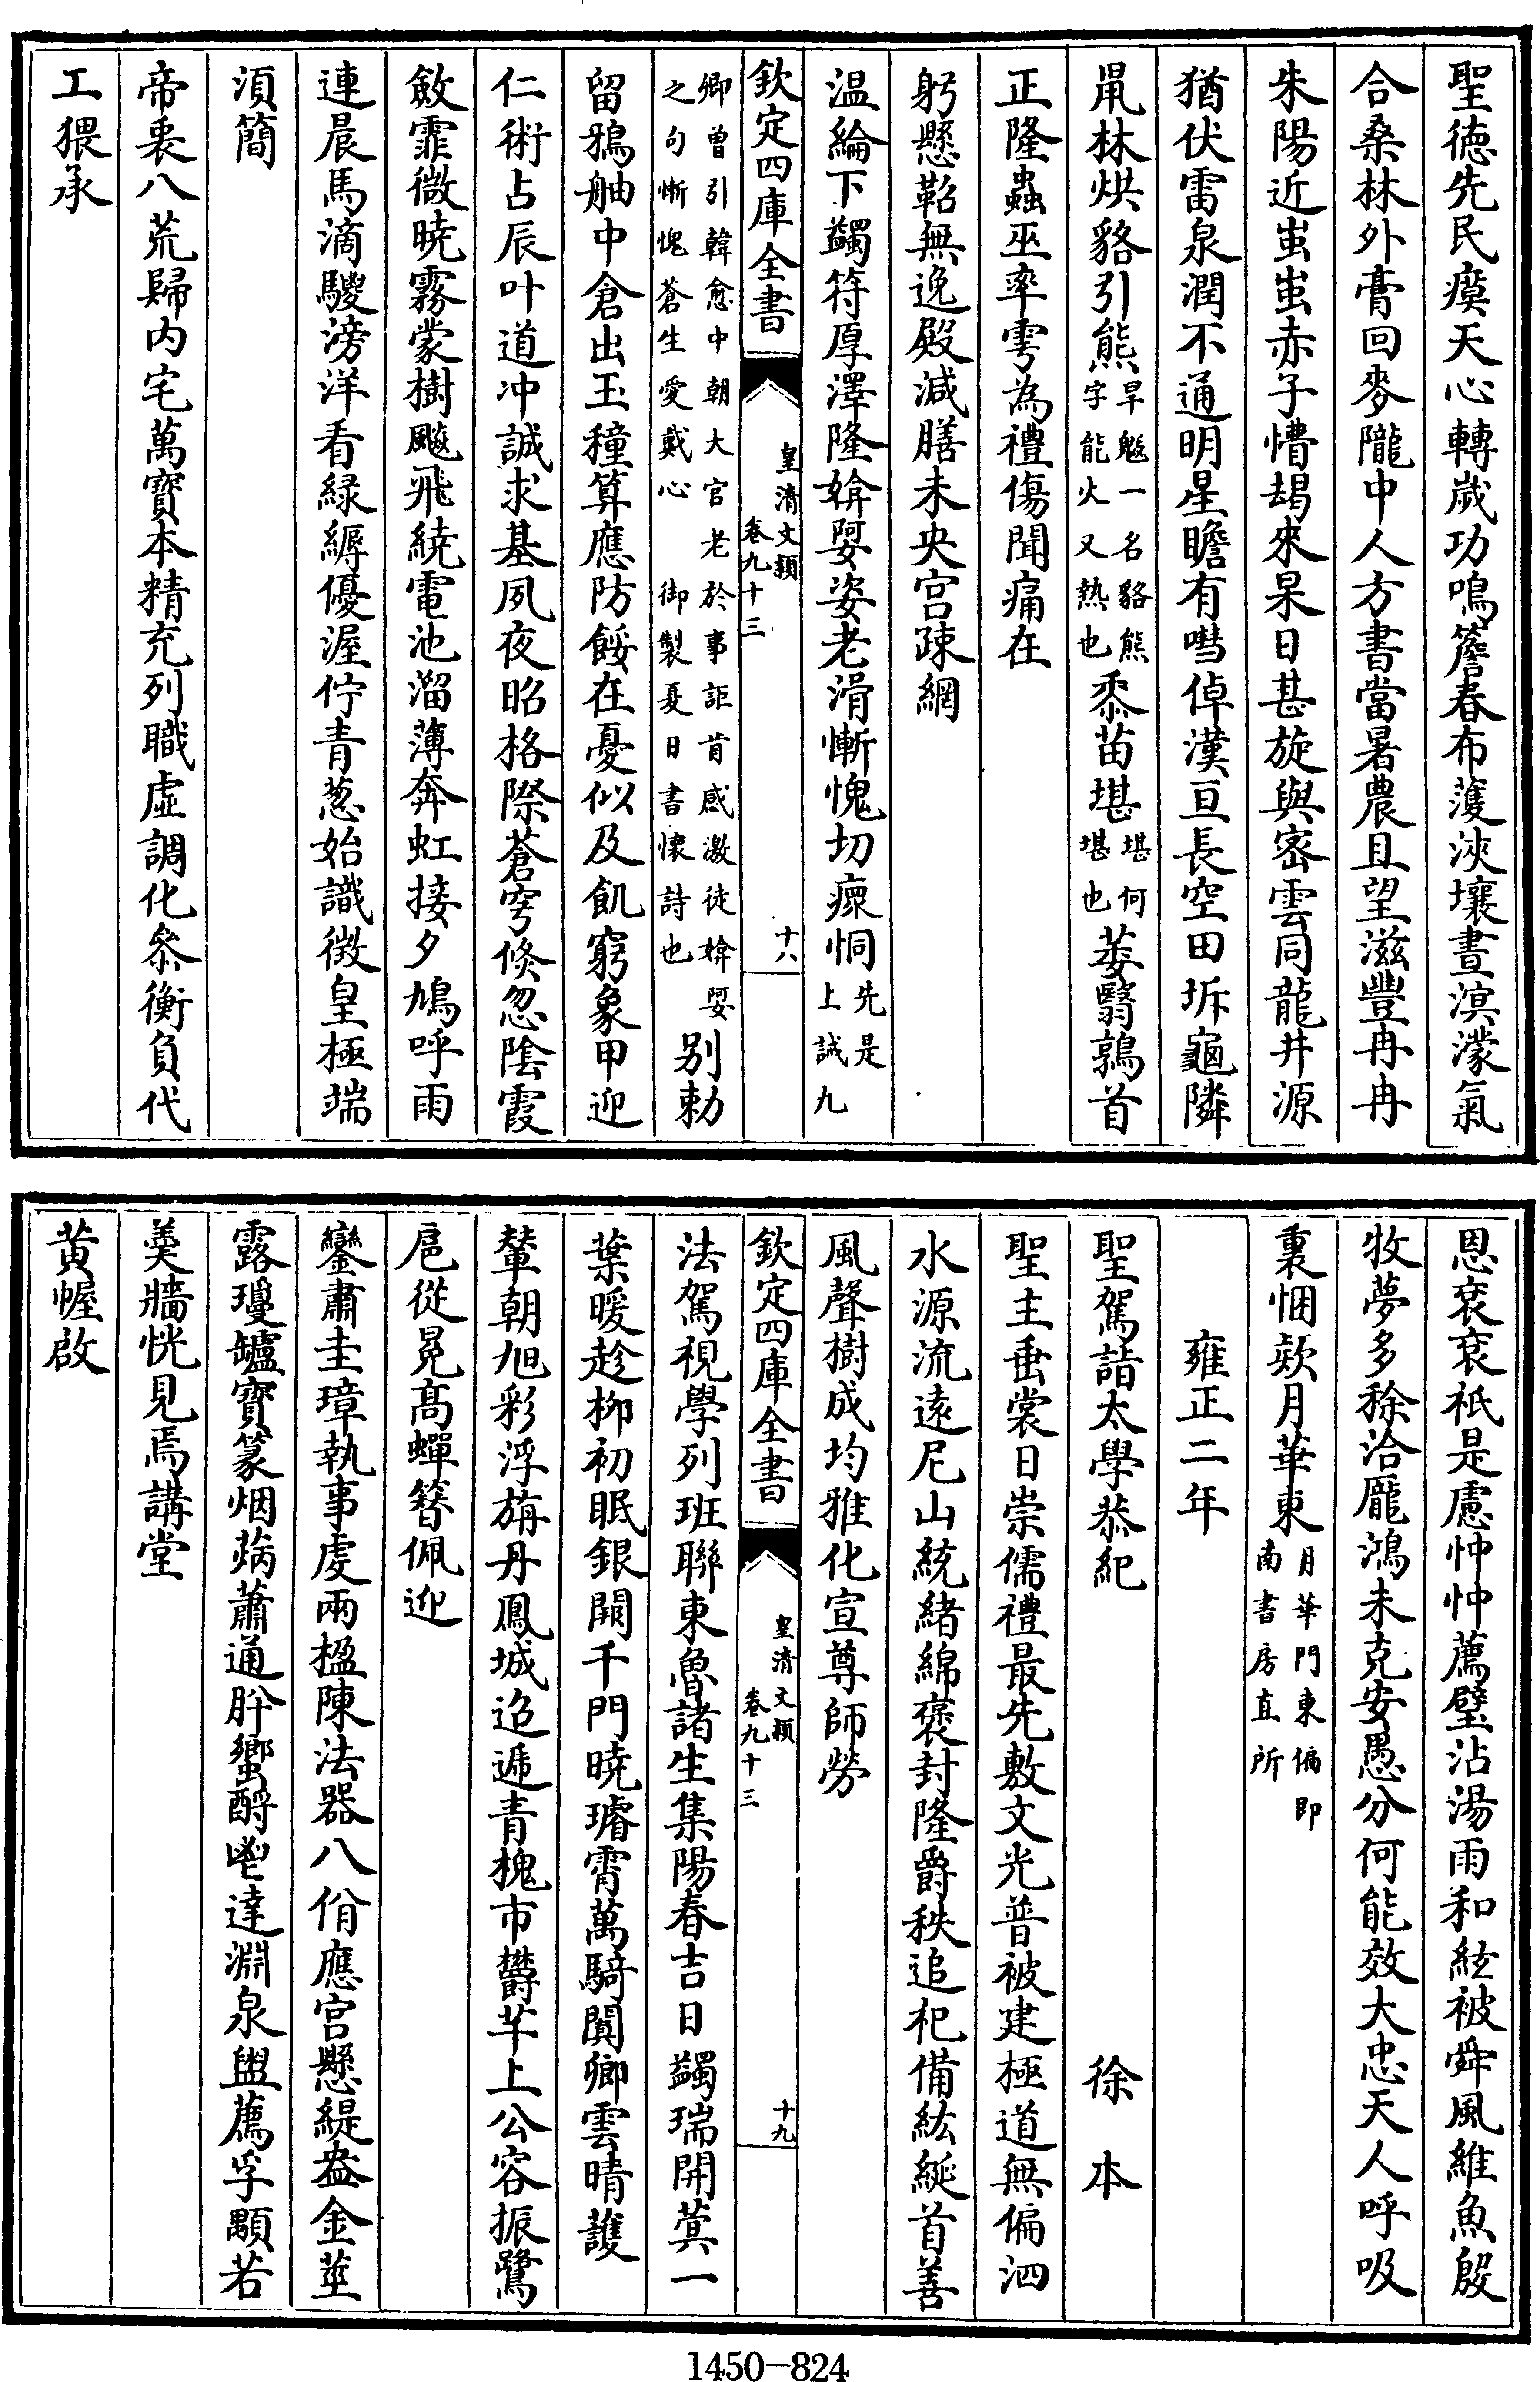 聖徳先民瘼天心轉歲功鳴簷春布濩浹壤晝溟濛氣
合桑林外膏回麥隴中人方書當暑農且望滋豐冉冉
朱陽近蚩蚩赤子慒朅來杲日甚旋與宻雲同龍井源
猶伏雷泉潤不通明星瞻有嘒倬漢亘長空田坼龜隣
黽林烘貉引熊旱魃一名貉熊字能火又熱也黍苗堪堪何堪也蔞翳鶉首
正隆蟲巫率雩為禮傷聞痛在
躬懸鞀無逸殿減膳未央宫疎網
温綸下蠲符厚澤隆媕娿姿老滑慚愧切瘝恫先是上誠九
欽定四庫全書
皇清文穎
卷九十三
十八
卿曽引韓愈中朝大官老於事詎肯感激徒媕娿之句慚愧蒼生愛戴心 御製夏日書懷詩也别勅
留鴉舳中倉出玉穜算應防餒在憂似及飢窮象甲迎
仁術占辰叶道冲誠求基夙夜昭格際蒼穹倐忽陰霞
斂霏微暁霧蒙樹飈飛繞電池溜薄奔虹接夕鳩呼雨
連晨馬滴騣滂洋看緑縟優渥佇青葱始識徴皇極端
湏簡
帝衷八荒歸内宅萬寳本精充列職虛調化叅衡負代
工猥承
恩衮衮祇是慮忡忡薦璧沾湯雨和絃被舜風維魚殷
牧夢多稌洽龎鴻未克安愚分何能效大忠天人呼吸
裏悃欵月華東月華門東偏即南書房直所
雍正二年
聖駕詣太學恭紀 徐本
聖主垂裳日崇儒禮最先敷文光普被建極道無偏泗
水源流逺尼山統緒綿褒封隆爵秩追祀備紘綖首善
風聲樹成均雅化宣尊師勞
欽定四庫全書
皇清文穎
卷九十三
十九
法駕視學列班聯東魯諸生集陽春吉日蠲瑞開蓂一
葉暖趁柳初眠銀闕千門暁璿霄萬騎闐卿雲晴護
輦朝旭彩浮旃丹鳳城迢遞青槐市欝芊上公容振鷺
扈從冕髙蟬簪佩迎
鑾肅圭璋執事虔兩楹陳法器八佾應宫懸緹盎金莖
露瓊罏寳篆烟焫蕭通肸蠁酹鬯達淵泉盥薦孚顒若
羮牆恍見焉講堂
黄幄啟